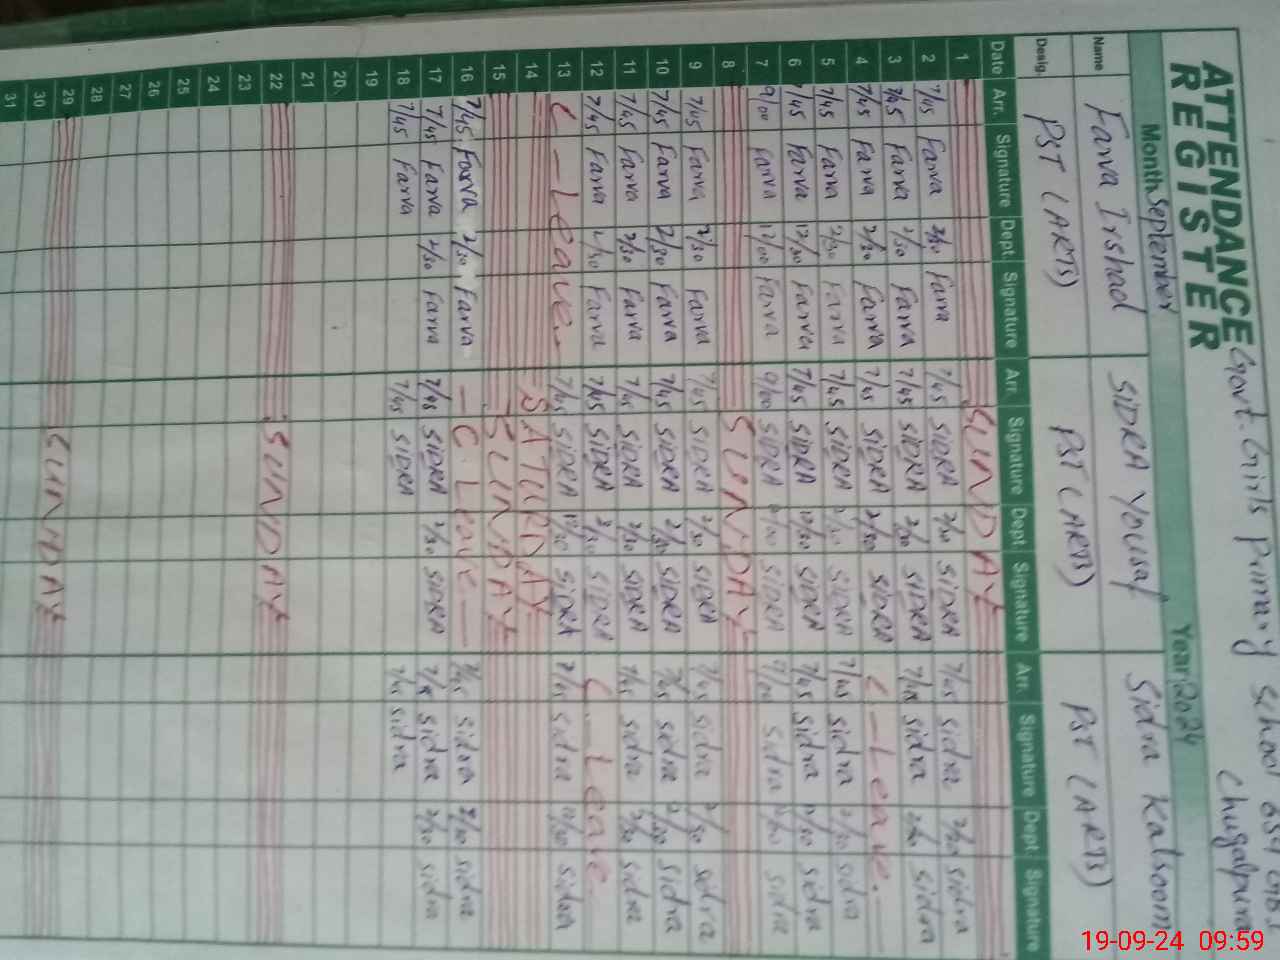 ATTENDANCE
REGISTER
Govt. Girls Primary School
Chugalpura
Month September Year 2024
Name Farva Irshad SIDRA Yousaf Sidra Kalsoom
Desig. PST (ARTS) PST (ARTS) PST (ARTS)
Date Arr. Signature Dept. Signature Arr. Signature Dept. Signature Arr. Signature Dept. Signature
1 SUNDAY
2 7/45 Farva 2/30 Farva 7/45 SIDRA 2/30 SIDRA 7/45 Sidra 2/30 Sidra
3 7/45 Farva 2/30 Farva 7/45 SIDRA 2/30 SIDRA 7/45 Sidra 2/30 Sidra
4 7/45 Farva 2/30 Farva 7/45 SIDRA 2/30 SIDRA C - Leave.
5 7/45 Farva 2/30 Farva 7/45 SIDRA 2/30 SIDRA 7/45 Sidra 2/30 Sidra
6 7/45 Farva 12/30 Farva 7/45 SIDRA 12/30 SIDRA 7/45 Sidra 12/30 Sidra
7 9/00 Farva 12/00 Farva 9/00 SIDRA SIDRA Sidra Sidra
8 SUNDAY
9 7/45 Farva 2/30 Farva 7/45 SIDRA 2/30 SIDRA 7/45 Sidra 2/30 Sidra
10 7/45 Farva 2/30 Farva 7/45 SIDRA 2/30 SIDRA 7/45 Sidra 2/30 Sidra
11 7/45 Farva 2/30 Farva 7/45 SIDRA 2/30 SIDRA 7/45 Sidra 2/30 Sidra
12 7/45 Farva 2/30 Farva 7/45 SIDRA 2/30 SIDRA C - Leave
13 C - Leave. 7/45 SIDRA 12/30 SIDRA 7/45 Sidra 12/30 Sidra
14 SATURDAY
15 SUNDAY
16 7/45 Farva 2/30 Farva C Leave 7/45 Sidra 2/30 Sidra
17 7/45 Farva 2/30 Farva 7/45 SIDRA 2/30 SIDRA 7/45 Sidra 2/30 Sidra
18 7/45 Farva 7/45 SIDRA 7/45 Sidra
19
20
21
22 SUNDAY
23
24
25
26
27
28
29 SUNDAY
30
31
19-09-24 09:59